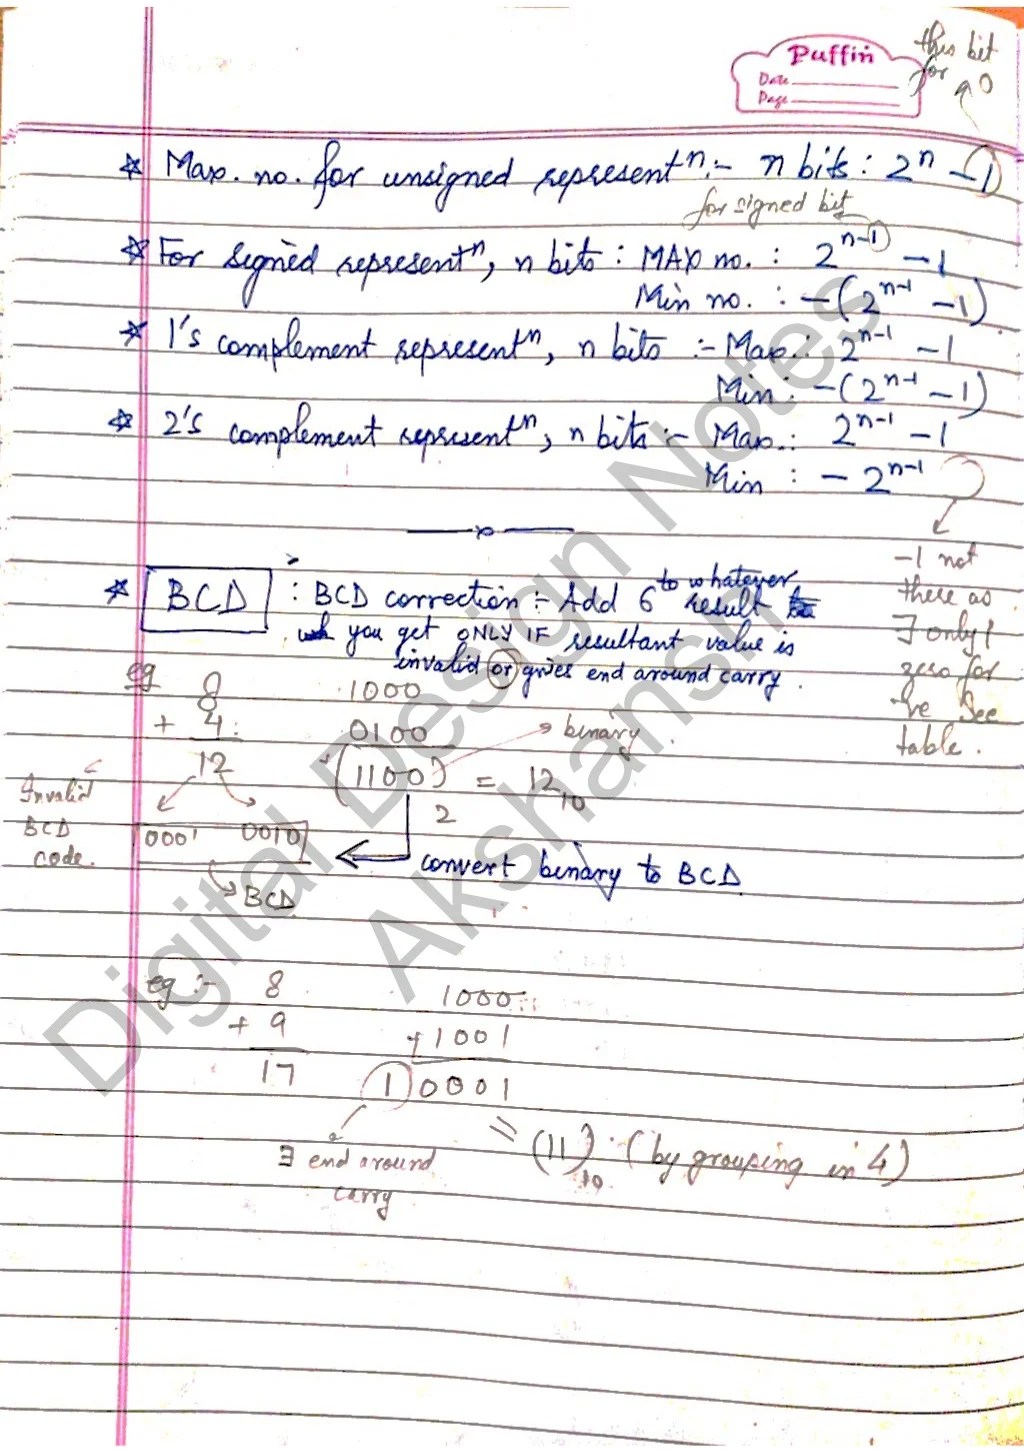 this bit
for a 0
Puffin
Date
Page
* Max. no. for unsigned representⁿ :- n bits : 2ⁿ - 1
for signed bit
* For signed representⁿ, n bits : MAX no. : 2ⁿ⁻¹ - 1
Min no. : -(2ⁿ⁻¹ - 1)
* 1's complement representⁿ, n bits :- Max. : 2ⁿ⁻¹ - 1
Min : -(2ⁿ⁻¹ - 1)
* 2's complement representⁿ, n bits :- Max. : 2ⁿ⁻¹ - 1
Min : - 2ⁿ⁻¹
-1 not
there as
∃ only 1
zero for
-ve See
table.
* BCD : BCD correction :- Add 6 to whatever result
you get ONLY IF resultant value is
invalid or gives end around carry.
eg 8 1000
+ 4 0100
→ binary
12 (1100)₂ = 12₁₀
Invalid
BCD
code.
0001 0010
convert binary to BCD
BCD
eg :- 8 1000
+ 9 + 1001
17 1 0001
= (11)₁₀ (by grouping in 4)
∃ end around
carry
Digital Design Notes
Akshansh